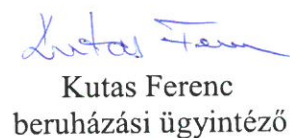 Kutas Ferenc
Kutas Ferenc
beruházási ügyintéző